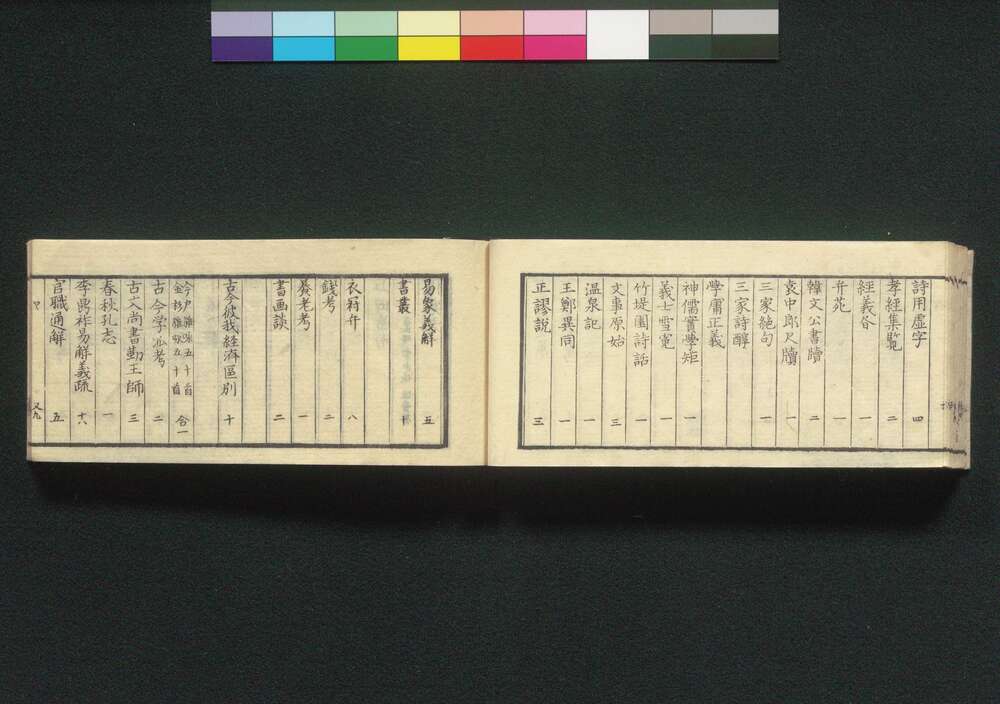 詩用虚字 四
孝経集覧 二
経義㕘 一
弁苑 一
韓文公書牘 二
袁中郎尺牘 一
三家絶句 一
三家詩醇
學庸正義
神儒實學矩 一
義士雪冤 一
竹堤園詩話 一
文事原始 三
温泉記 一
王鄭異同 一
正謬説 三
易象義解 五
書叢 十
衣 弁 八
錢考 二
養老考 一
書画談 二
古今彼我経済區別 十
今戸雜咏五十首
金杉雜咏五十首 合一
古今学 考 二
古文尚書勤王師 三
春秋孔志 一
李鼎祚易解義疏 十六
官職通解 五